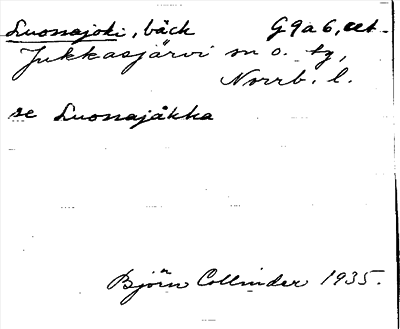 Luossajoki, bäck G9a6, cet.
Jukkasjärvi sn o. tg,
Norrb. l.
se Luossajåkka
Björn Collinder 1935.